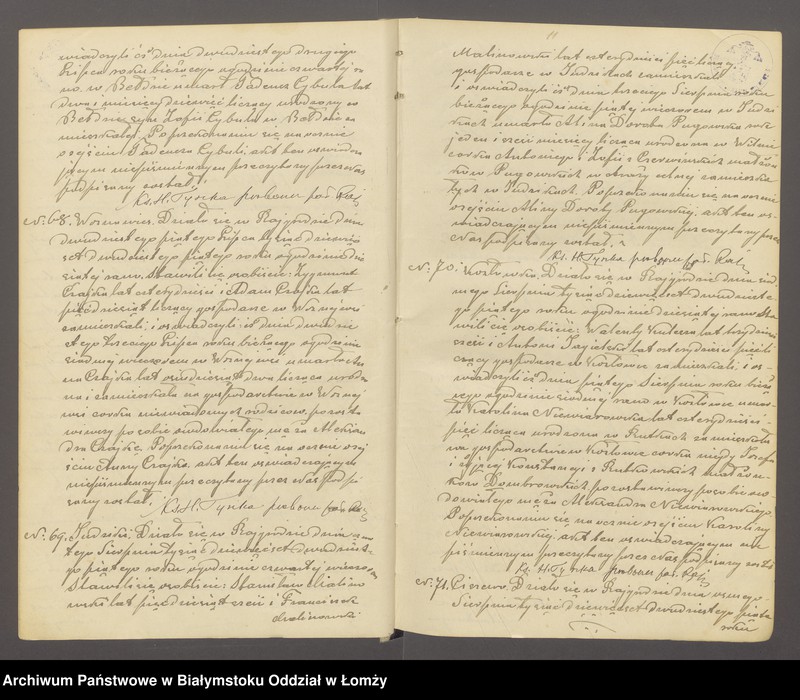 wiadczyli iż dnia dwudziestego drugiego
Lipca roku bieżącego o godzinie czwartej ra
no w Bełdzie umarł Tadeusz Cybula lat
dwa i miesięcy dziewięć liczący urodzony w
Bełdzie syn Zofii Cybula w Bełdzie za
mieszkałej. Po przekonaniu się naocznie
o zejściu Tadeusza Cybuli, akt ten oświadcza
jącym niepiśmiennym przeczytany przez Nas
podpisany został.
Ks. H. Tyszka proboszcz par. Raj.
No: 68. Woznawieś. Działo się w Rajgrodzie dnia
dwudziestego piątego Lipca tysiąc dziewięć
set dwudziestego piątego roku o godzinie dzie
siątej rano. Stawili się osobiście: Zygmunt
Czajka lat czterdzieści i Adam Czajka lat
pięćdziesiąt liczący gospodarze w Woznejwsi
zamieszkali; i oświadczyli iż dnia dwudzie
stego trzeciego Lipca roku bieżącego o godzinie
siódmej wieczorem w Woznejwsi umarła An
na Czajka lat osiemdziesiąt dwa licząca urodzo
na i zamieszkała na gospodarstwie w Woznej
wsi córka niewiadomych rodziców, pozosta
wiwszy po sobie owdowiałego męża Aleksan
dra Czajkę. Po przekonaniu się naocznie o zej
ściu Anny Czajka, akt ten oświadczającym
niepiśmiennym przeczytany przez Nas podpi
sany został.
Ks. H. Tyszka proboszcz par. Raj.
No: 69. Judziki. Działo się w Rajgrodzie dnia
tego Sierpnia tysiąc dziewięćset dwudzieste
go piątego roku o godzinie czwartej wieczorem
Stawili się osobiście: Stanisław Malino
wski lat pięćdziesiąt trzy i Franciszek
Malinowski
11
Malinowski lat czterdzieści pięć liczący,
gospodarze w Judzikach zamieszkali
i oświadczyli iż dnia trzeciego Sierpnia roku
bieżącego o godzinie piątej wieczorem w Judzi
kach umarła Alina Dorota Pugowska rok
jeden i sześć miesięcy licząca urodzona w Wilnie
córka Antoniego i Zofii z Czerwińskich małżon
ków Pugowskich w
tych w Judzikach. Po przekonaniu się naocznie
o zejściu Aliny Doroty Pugowskiej, akt ten oś
wiadczającym niepiśmiennym przeczytany przez
Nas podpisany został.
Ks. H. Tyszka proboszcz par. Raj.
No: 70. Działo się w Rajgrodzie dnia siód
mego Sierpnia tysiąc dziewięćset dwudzieste
go piątego roku o godzinie dziesiątej rano. Sta
wili się osobiście: Walenty lat trzydzieści
sześć i Antoni Jagielski lat czterdzieści pięć li
czący gospodarze w Kozłówce zamieszkali; i oś
wiadczyli iż dnia piątego Sierpnia roku bieżą
cego o godzinie siódmej rano w Kozłówce umar
ła Karolina Niewiarowska lat czterdzieści
pięć licząca urodzona w Rutkach zamieszkała
na gospodarstwie w Kozłówce córka niegdy Józefa
i żyjącej Konstancyi z Rutkowskich małżon
ków Dombrowskich, pozostawiwszy po sobie ow
dowiałego męża Aleksandra Niewiarowskiego.
Po przekonaniu się naocznie o zejściu Karoliny
Niewiarowskiej, akt ten oświadczającym nie
piśmiennym przeczytany przez Nas podpisany został
Ks. H. Tyszka proboszcz par. Raj.
No: 71. Działo się w Rajgrodzie dnia ósmego
Sierpnia tysiąc dziewięćset dwudziestego piąte
roku
Archiwum Państwowe w Białymstoku Oddział w Łomży